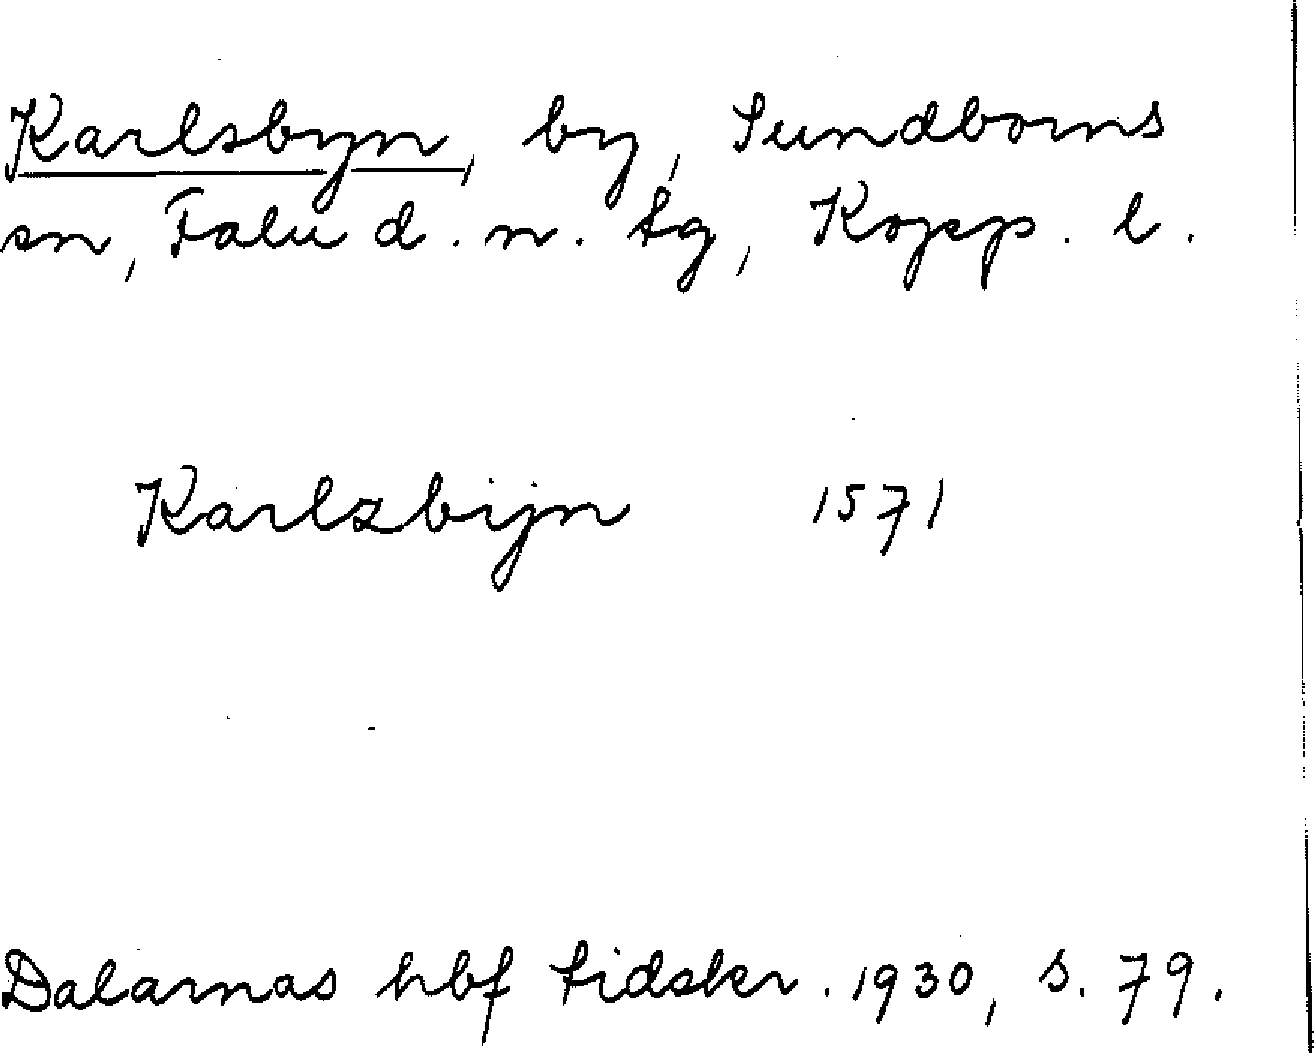 Karlsbyn, by, Sundborns
sn, Falu d. n. tg, Kopp. l.
Karlzbijn 1571
Dalarnas hbf tidskr. 1930, s. 79.